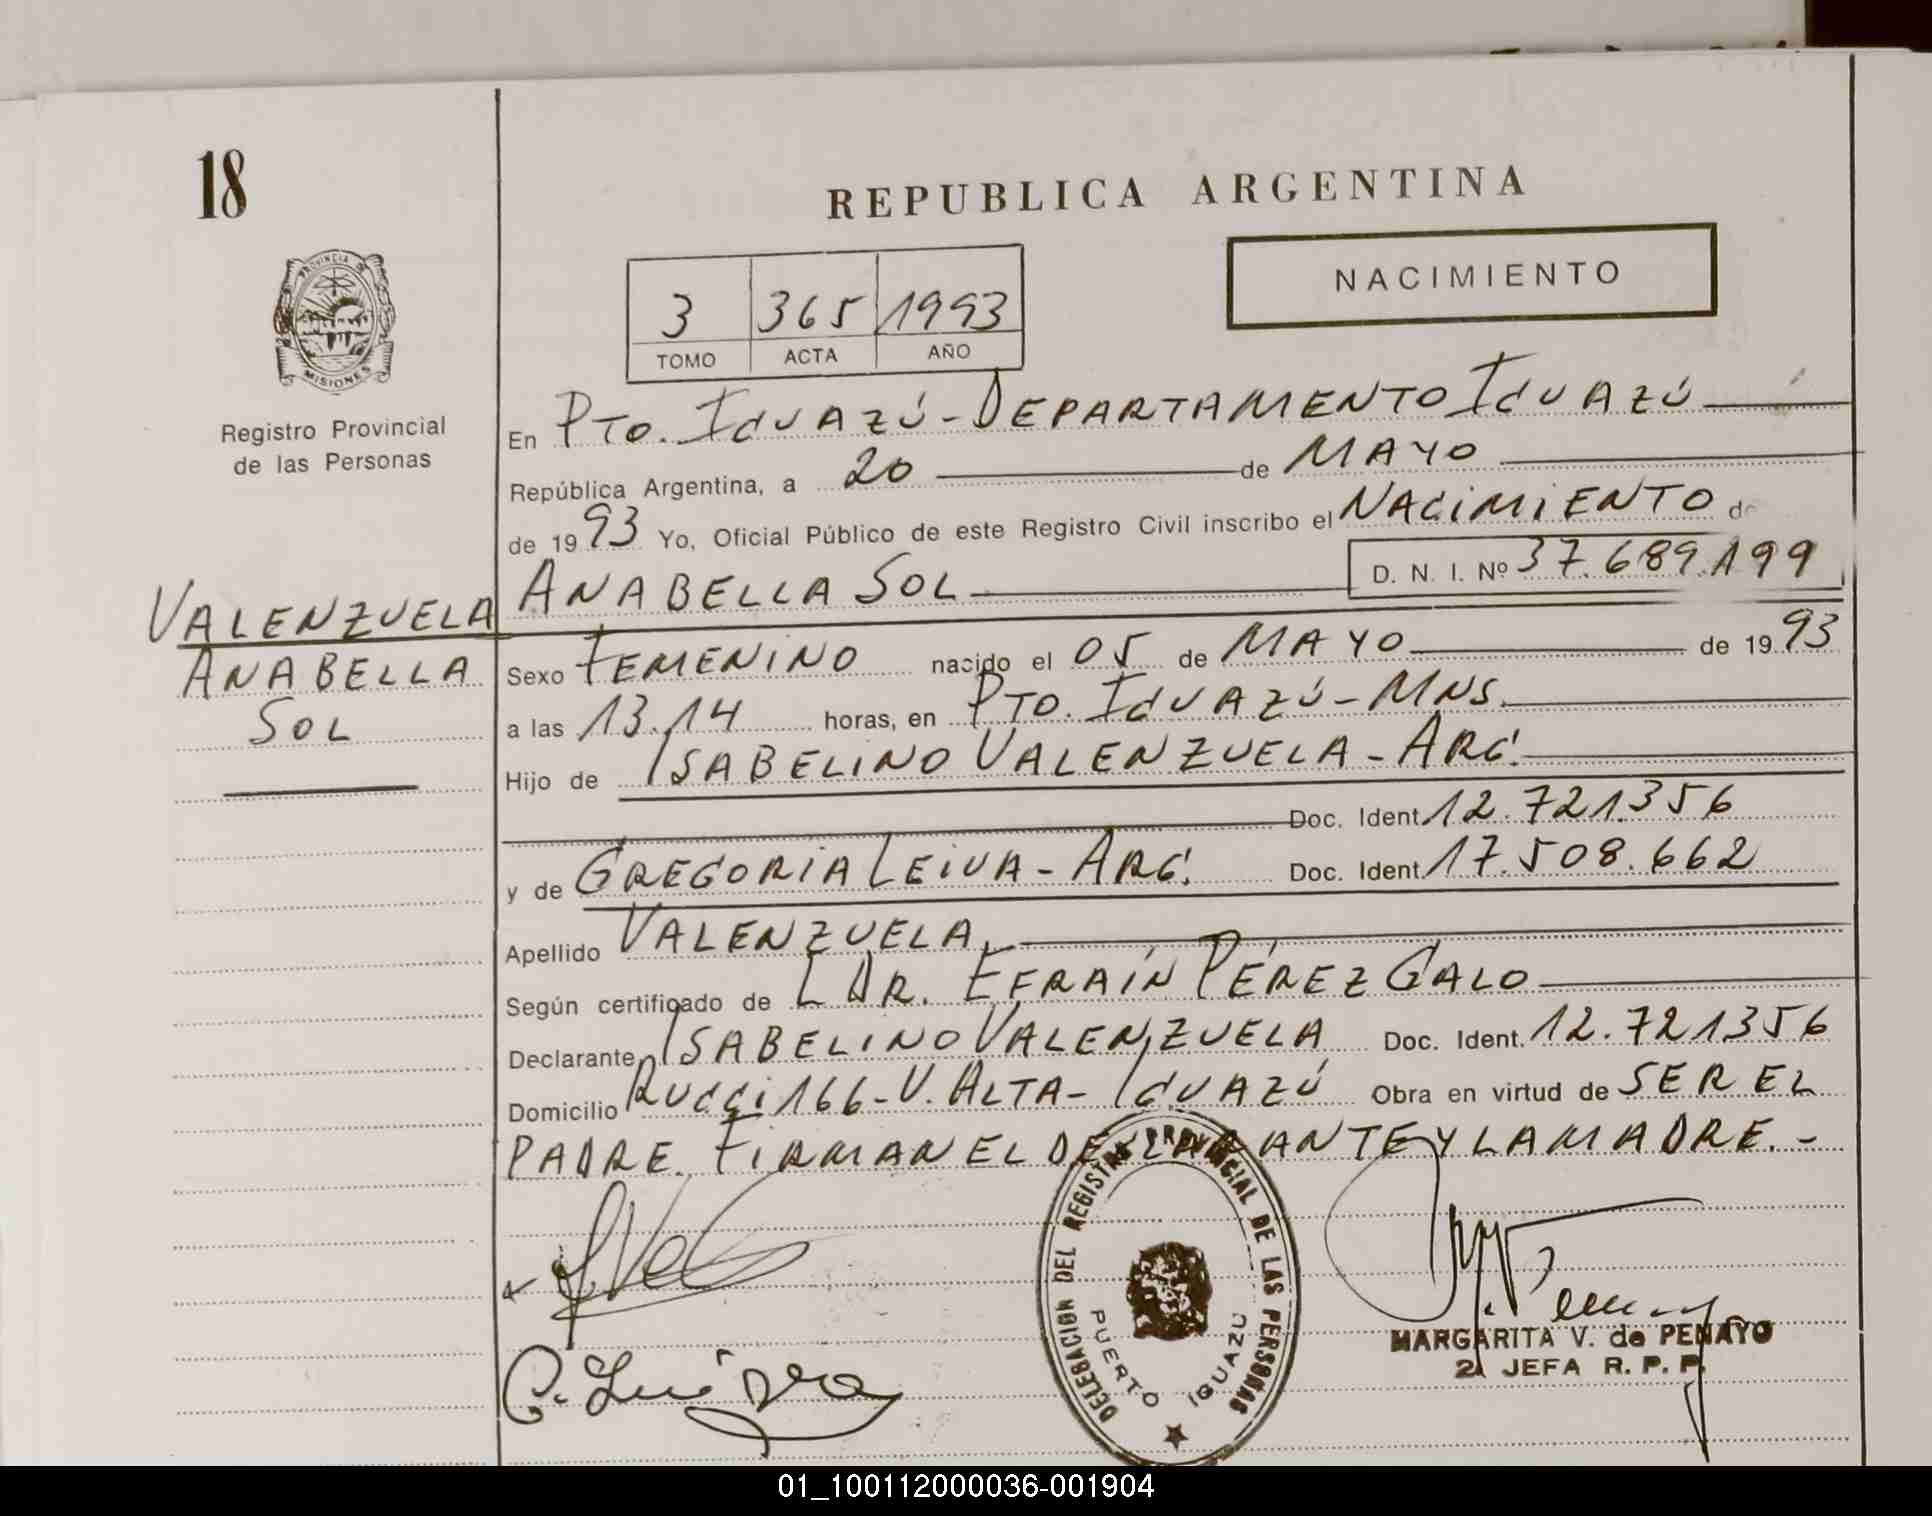 18
REPUBLICA ARGENTINA
PROVINCIA DE
MISIONES
Registro Provincial
de las Personas
3 365 1993
TOMO ACTA AÑO
NACIMIENTO
En PTO. IGUAZÚ - DEPARTAMENTO IGUAZÚ
República Argentina, a 20 de MAYO
de 1993 Yo, Oficial Público de este Registro Civil inscribo el NACIMIENTO de
VALENZUELA
ANABELLA
SOL
ANABELLA SOL D. N. I. Nº 37.689.199
Sexo FEMENINO nacido el 05 de MAYO de 1993
a las 13.14 horas, en PTO. IGUAZÚ - MNS.
Hijo de ISABELINO VALENZUELA - ARG.
Doc. Ident. 12.721.356
y de GREGORIA LEIVA - ARG. Doc. Ident. 17.508.662
Apellido VALENZUELA.
Según certificado de L DR. EFRAÍN PÉREZ GALO
Declarante ISABELINO VALENZUELA Doc. Ident. 12.721.356
Domicilio RUCCI 166 - V. ALTA - IGUAZÚ Obra en virtud de SER EL
PADRE. FIRMAN EL DECLARANTE Y LA MADRE. -
DELEGACION DEL REGISTRO PROVINCIAL DE LAS PERSONAS
PUERTO IGUAZU
MARGARITA V. de PENAYO
2ª JEFA R. P. P.
01_100112000036-001904